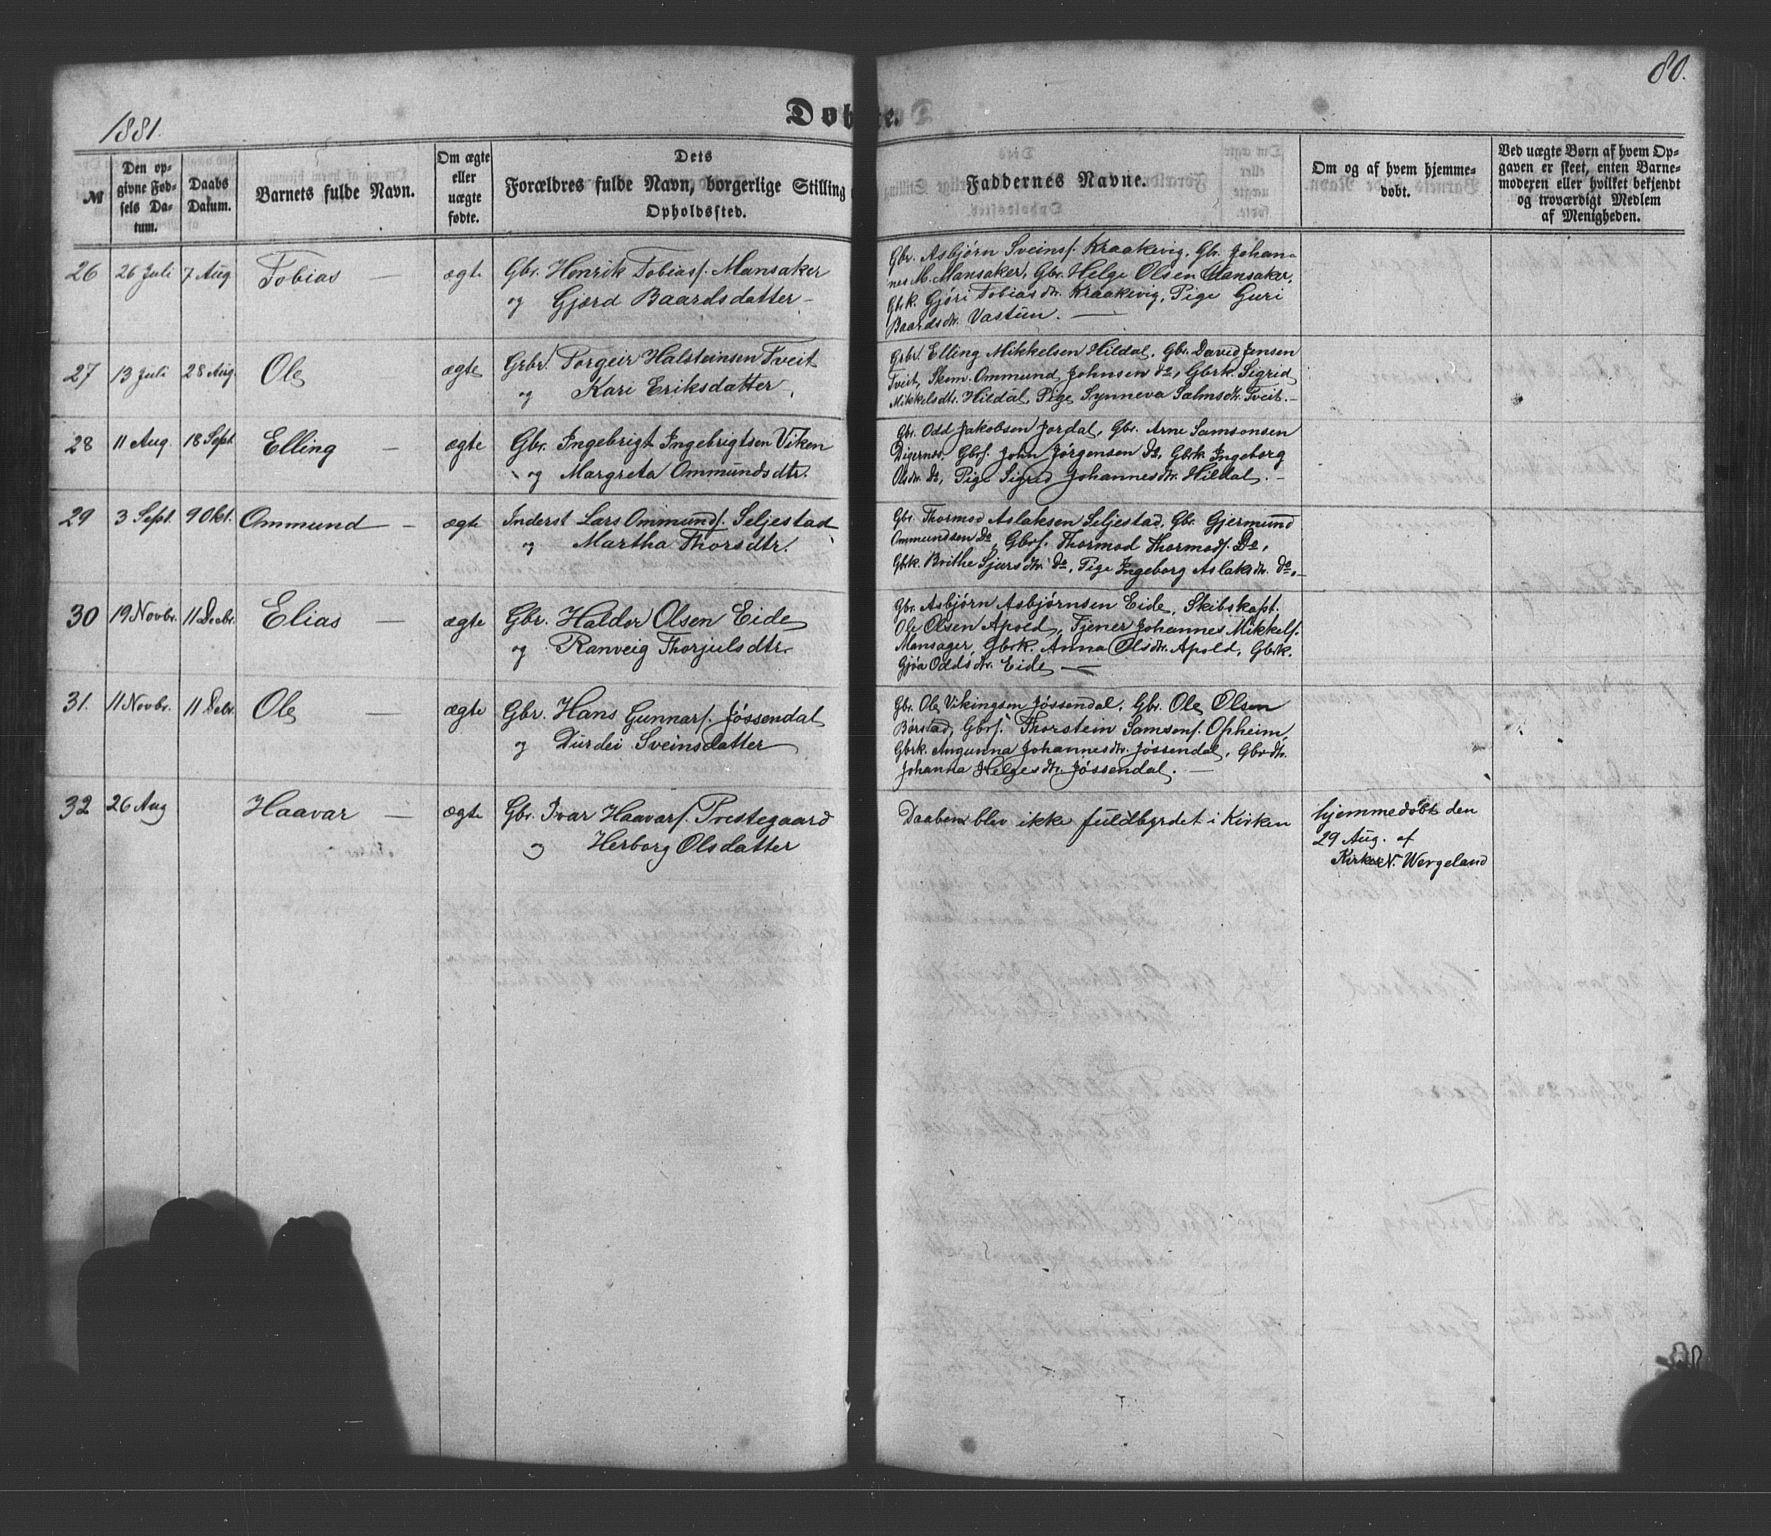 80.
1881.
Døbte.
№
Den op-
givne Fød-
sels Da-
tum.
Daabs
Datum.
Barnets fulde Navn.
Om ægte
eller
uægte
fødte.
Dets
Forældres fulde Navn, borgerlige Stilling
Opholdssted.
Faddernes Navne.
Om og af hvem hjemme-
døbt.
Ved uægte Børn af hvem Op-
gaven er skeet, enten Barne-
moderen eller hvilket bekjendt
og troværdigt Medlem
af Menigheden.
26 26 Juli 7 Aug Tobias — ægte
Gbr. Henrik Tobiass. Mansaker
og Gjærd Baardsdatter —
Gbr. Asbjørn Sveins. Kraakevig, Gbr. Johan-
nes M. Mansaker, Gbr. Helge Olsen Mansaker,
Gbk. Gjøri Tobiasdtr. Kraakevig, Pige Guri
Baardsdtr. Vastun. —
27 13 Juli 28 Aug. Ole ægte
Grbr. Torgeir Halsteinsen Tveit
og Kari Eriksdatter.
Grbr. Elling Mikkelsen Hildal, Gbr. David Jensen
Tveit, Skom. Ommund Johnsen do, Gbrk. Sigrid
Mikkelsdtr. Hildal, Pige Synneva Salmdtr. Tveit. —
28 11 Aug. 18 Sept. Elling — ægte
Gbr. Ingebrigt Ingebrigtsen Viken
og Margreta Ommundsdtr.
Gbr. Odd Jakobsen Jordal, Gbr. Arne Samsonsen
Digernes, Gbrs. John Jørgensen do, Gbrk. Ingeborg
Olsdtr. do, Pige Sigrid Johannesdtr. Hildal. —
29 3 Sept. 9 Okt. Ommund — ægte
Inderst Lars Ommunds. Seljestad
og Martha Thorsdtr.
Gbr. Thormod Aslaksen Seljestad, Gbr. Gjermund
Ommundsen do, Gbrs. Thormod Thormods. Do,
Gbrk. Brithe Sjursdtr. do, Pige Ingeborg Aslaksdtr. do, —
30 19 Novbr. 11 Decbr. Elias — ægte
Gbr. Haldor Olsen Eide
og Ranveig Thorjulsdtr.
Gbr. Asbjørn Asbjørnsen Eide, Skibskapt.
Ole Olsen Apold, Tjener Johannes Mikkels.
Mansager, Gbrk. Anna Olsdtr. Apold, Gbrk.
Gjøa Oddsdtr. Eide —
31. 11 Novbr. 11 Debr. Ole — ægte
Gbr. Hans Gunnars. Jøssendal
og Durdei Sveinsdatter
Gbr. Ole Vikingsen Jøssendal, Gbr. Ole Olsen
Børstad, Gbrs. Thorstein Samsons. Opheim,
Gbrk. Angunna Johannesdtr. Jøssendal, Gbrdtr.
Johanna Helgesdtr. Jøssendal. —
32 26 Aug Haavar — ægte
Gbr. Ivar Haavars. Prestegaard
og Herborg Olsdatter
Daaben blev ikke fuldbyrdet i Kirken
hjemmedøbt den
29 Aug. af
Kirkes. N. Wergeland